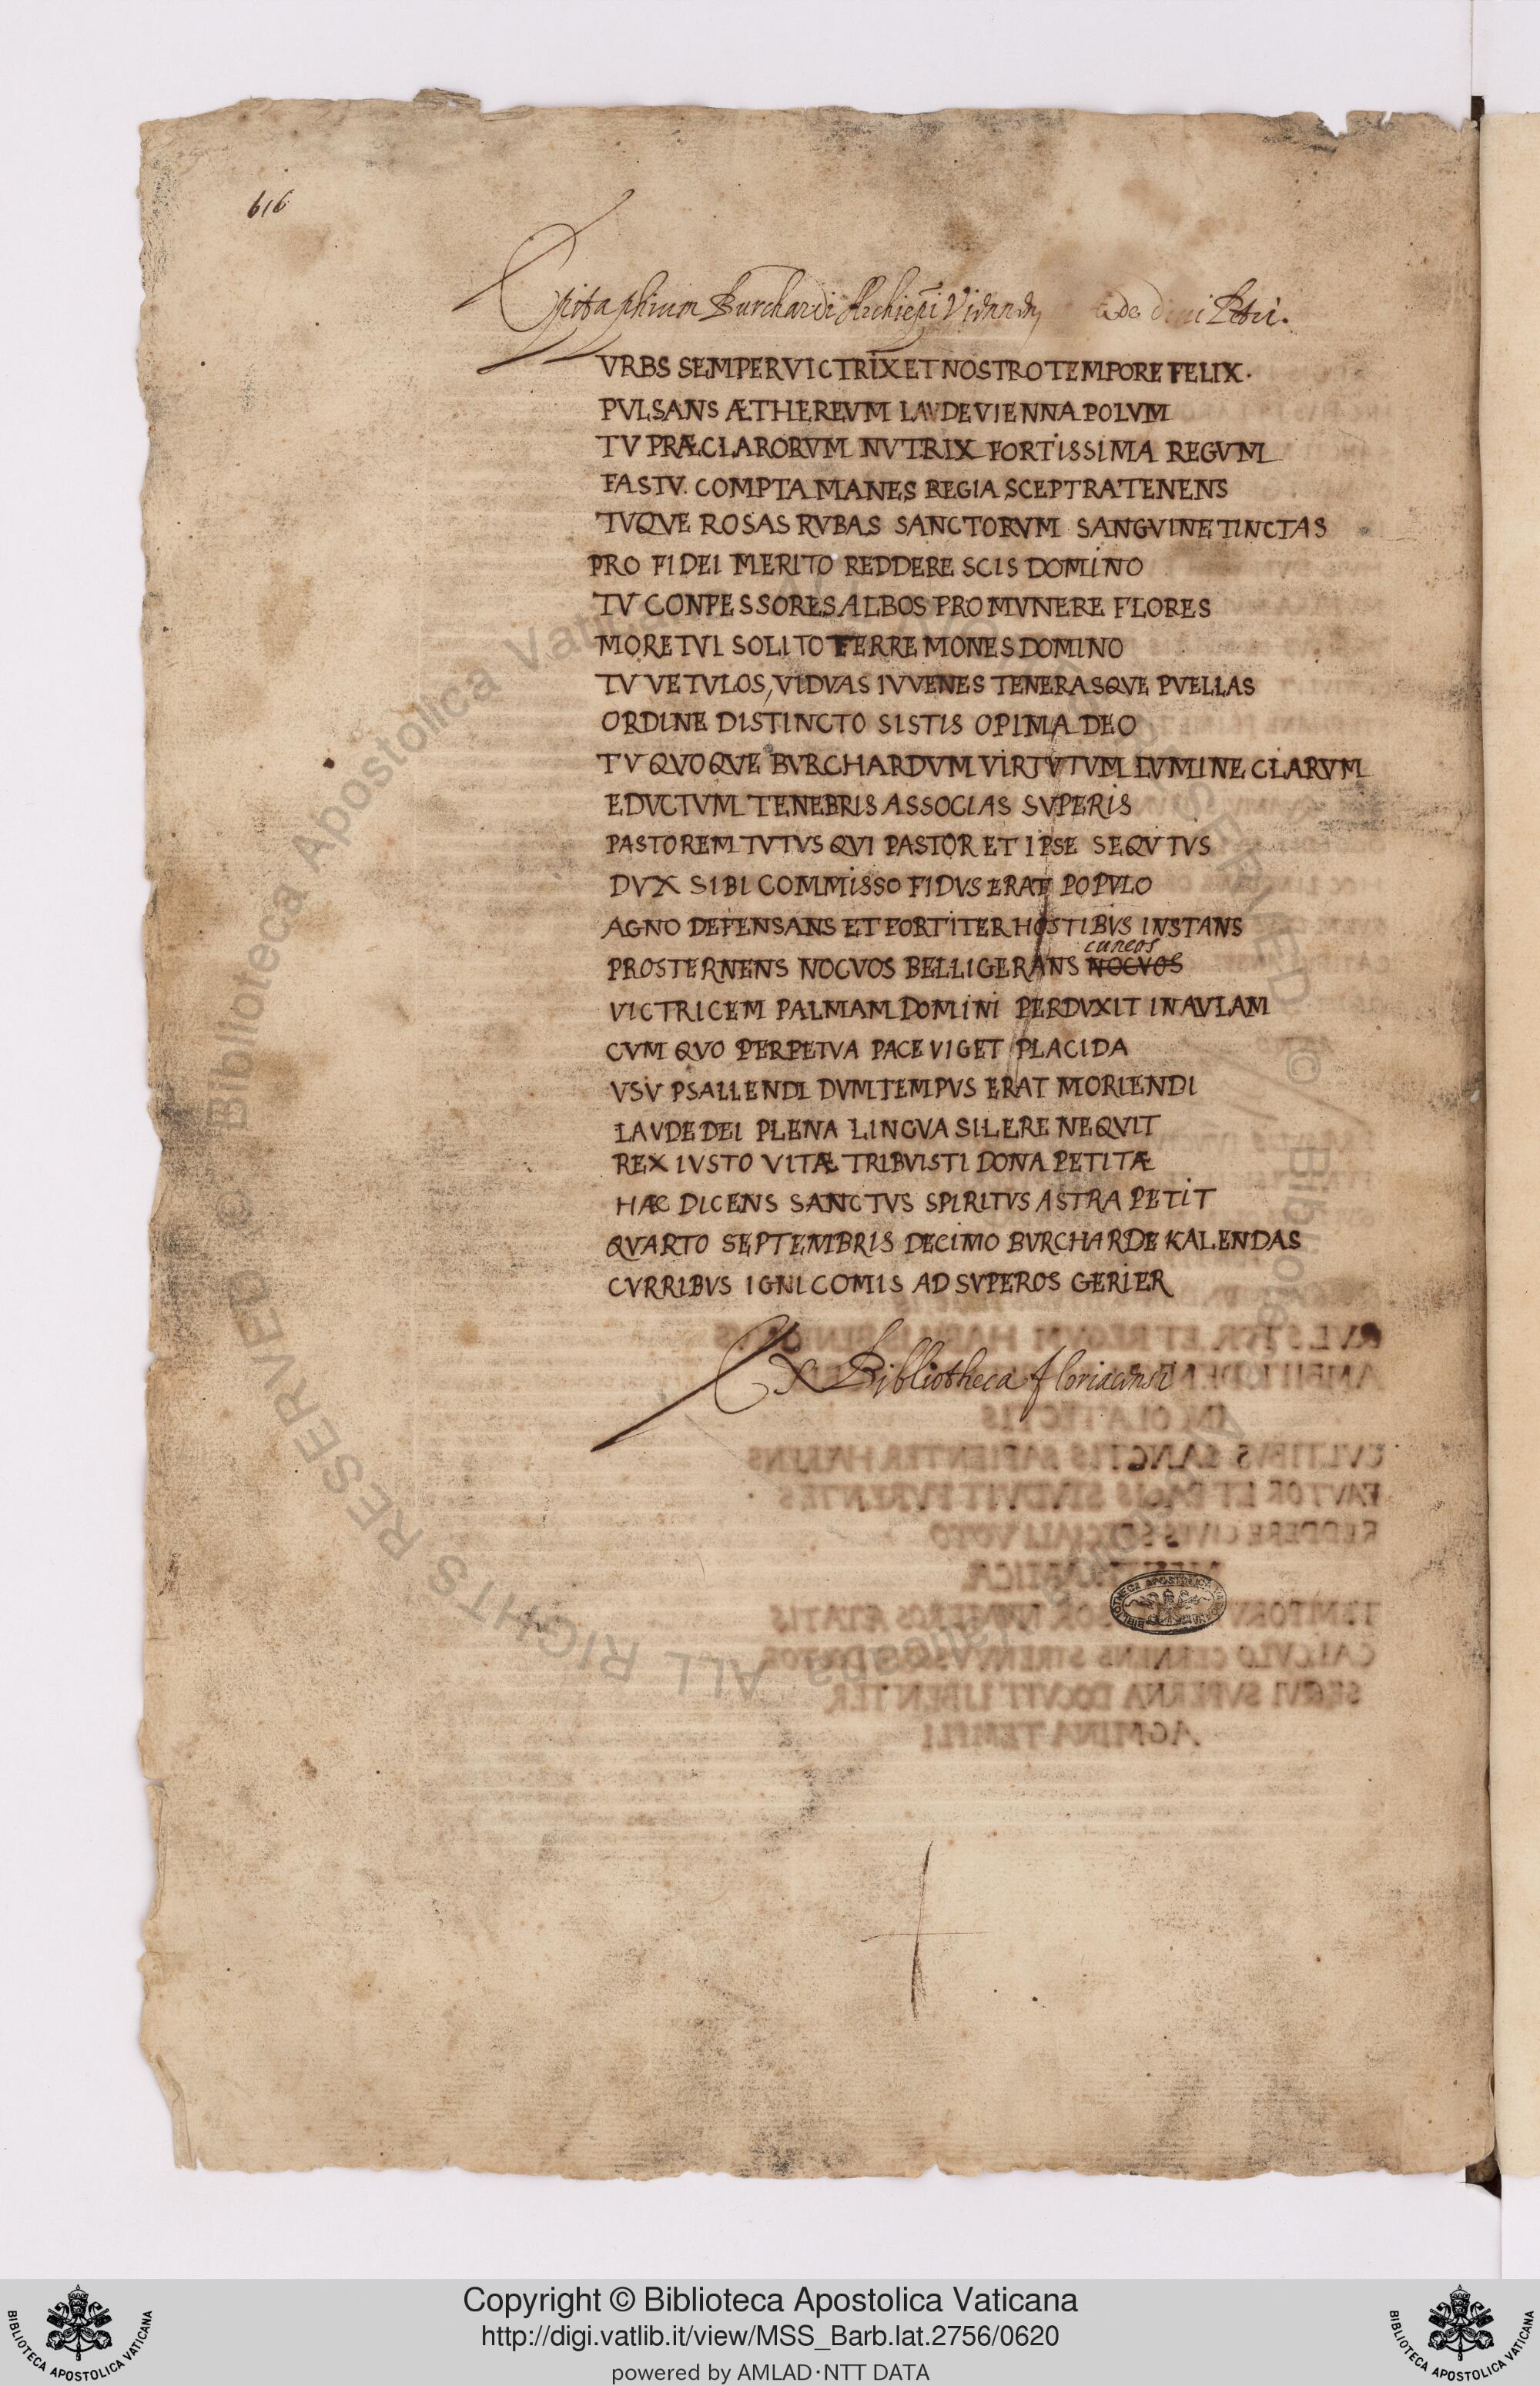 616
Epitaphium Burchardi Archiepi Viennen aede divi Petri.
VRBS SEMPER VICTRIX ET NOSTRO TEMPORE FELIX.
PVLSANS ÆTHEREVM LAVDE VIENNA POLVM
TV PRÆCLARORVM NVTRIX FORTISSIMA REGVM
FASTV. COMPTA MANES REGIA SCEPTRA TENENS
TVQVE ROSAS RVBAS SANCTORVM SANGVINE TINCTAS
PRO FIDEI MERITO REDDERE SCIS DOMINO
TV CONFESSORES ALBOS PRO MVNERE FLORES
MORE TVI SOLITO FERRE MONES DOMINO
TV VETVLOS, VIDVAS IVVENES TENERASQVE PVELLAS
ORDINE DISTINCTO SISTIS OPIMA DEO
TV QVOQVE BVRCHARDVM VIRTVTVM LVMINE CLARVM
EDVCTVM TENEBRIS ASSOCIAS SVPERIS
PASTOREM TVTVS QVI PASTOR ET IPSE SEQVTVS
DVX SIBI COMMISSO FIDVS ERAT POPVLO
AGNO DEFENSANS ET FORTITER HOSTIBVS INSTANS
cuneos
PROSTERNENS NOCVOS BELLIGERANS NOCVOS
VICTRICEM PALMAM DOMINI PERDVXIT IN AVLAM
CVM QVO PERPETVA PACE VIGET PLACIDA
VSV PSALLENDI DVM TEMPVS ERAT MORIENDI
LAVDE DEI PLENA LINGVA SILERE NEQVIT
REX IVSTO VITÆ TRIBVISTI DONA PETITÆ
HÆC DICENS SANCTVS SPIRITVS ASTRA PETIT
QVARTO SEPTEMBRIS DECIMO BVRCHARDE KALENDAS
CVRRIBVS IGNICOMIS AD SVPEROS GERIER
Ex Bibliotheca floriacensi
Copyright © Biblioteca Apostolica Vaticana
http://digi.vatlib.it/view/MSS_Barb.lat.2756/0620
powered by AMLAD·NTT DATA
BIBLIOTECA APOSTOLICA VATICANA
BIBLIOTECA APOSTOLICA VATICANA